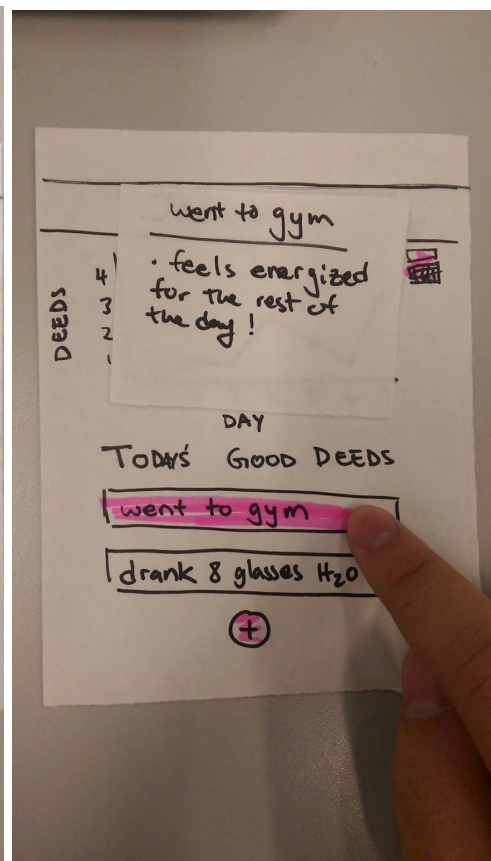 went to gym
· feels energized
for the rest of
the day !
DEEDS
4
3
2
1
DAY
TODAY'S GOOD DEEDS
went to gym
drank 8 glasses H₂O
+